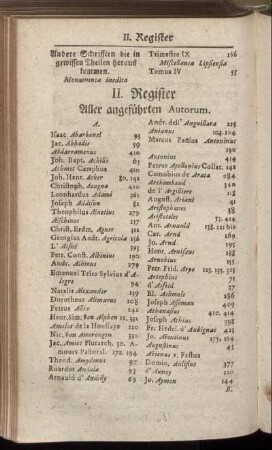 II. Register
Andere Schrifften die in
gewissen Theilen heraus
kommen.
Monumenta inedita
Trimestre IX 166
Miscellanea Lipsiensia
Tomus IV 55
II. Register
Aller angeführten Autorum.
A.
Isaac Abarbanel 95
Jac. Abbadie 59
Abdarramenus 410
Joh. Bapt. Achilli 65
Achmet Carephus 410
Joh. Henr. Acker 80, 141
Christoph. Acugna 410
Leonhardus Adami 361
Joseph Addison 81
Theophilus Aenetius 279
Aeschines 117
Christ. Erdm. Agner 311
Georgius Andr. Agricola 136
L' Aisné 393
Petr. Const. Albinius 290
Andr. Albinus 279
Emanuel Telez Sylvius d'A-
legre 94
Natalis Alexander 139
Dorotheus Alimarus 108
Petrus Allix 142
Henr. Sim. von Alphen 11. 331
Amelot de la Houssaye 20
Nic. von Amerongen 331
Jac. Amiot Plutarch. 30. A-
mours Pastoral. 172. 194
Theod. Amydenus 97
Ruardus Andala 93
Arnauld d'Andilly 69
Andr. dell' Anguillara 225
Anianus 103. 104
Marcus Paulus Antoninus
290
Antonius 414
Petrus Apollonius Collat. 141
Cunobius de Arata 084
Archimbaud 340
de l' Argiliere 118
August. Ariani 41
Aristophanes 38
Aristoteles 53
Ant. Arnauld 138. 211 bis
Car. Arnd 169
Jo. Arnd 195
Henr. Arnisæus 195
Arnobius 41
Petr. Frid. Arpe 115. 135. 325
Artephius 91
d'Asfeld 37
El. Aschmole 186
Joseph Asseman 409
Athanasius 410, 414
Joseph Athias 398
Fr. Hedel. d'Aubignac 421
Jo. Aventinus 175. 164
Augustinus 65
Avienus v. Festus
Domin. Aulisius 377
d'Auney 110
Jo. Aymon 144
B.